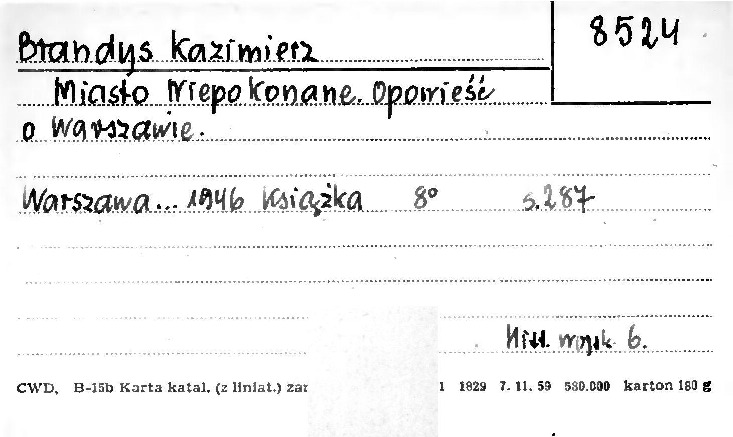 8524
Brandys Kazimierz
Miasto Niepokonane. Opowieść
o Warszawie.
Warszawa... 1946 Książka 8° s.287
Hist. wojsk 6.
CWD, B-15b Karta katal. (z liniat.) zar 1 1829 7. 11. 59 580.000 karton 180 g